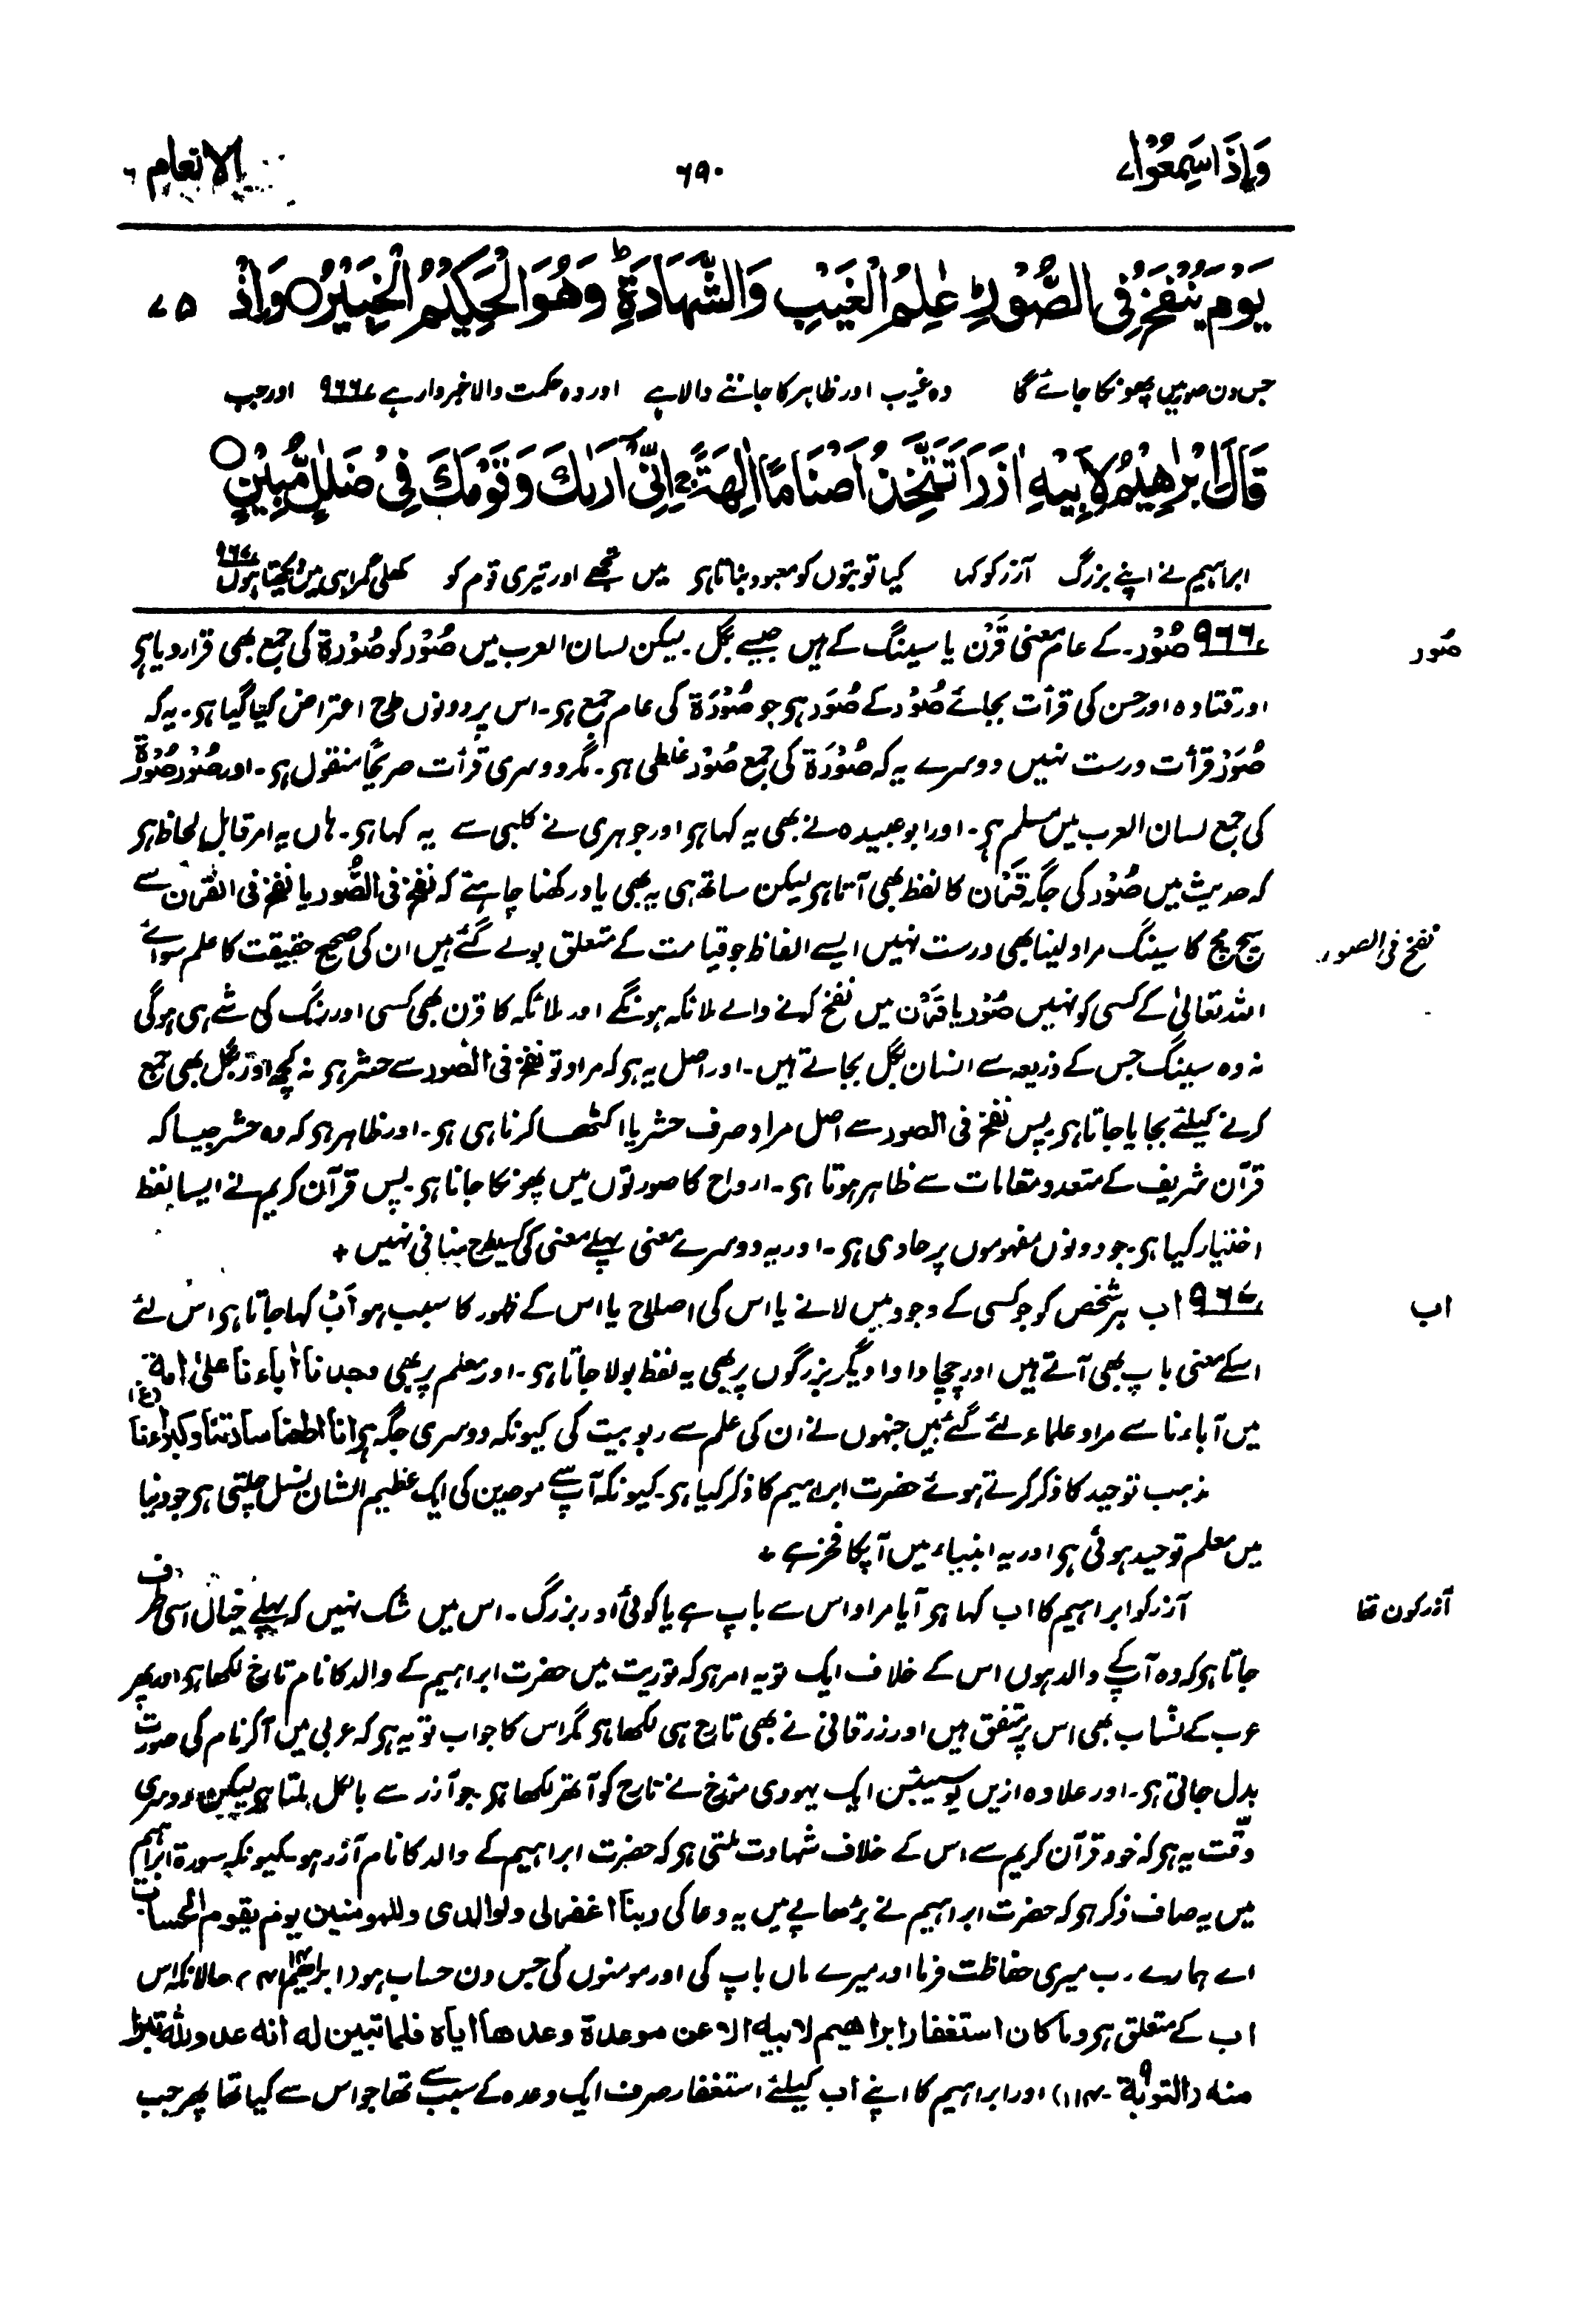 وَإِذَا سَمِعُوْا ۷
۶۹۰
الانعام ۶
يَوْمَ يُنْفَخُ فِى الصُّوْرِ ؕ عٰلِمُ الْغَيْبِ وَالشَّهَادَةِ ؕ وَهُوَ الْحَكِيْمُ الْخَبِيْرُ ○ وَاِذْ
۷۵
جس دن صور میں پھونکا جائے گا وہ غیب اور ظاہر کا جاننے والا ہے اور وہ حکمت والا خبردار ہے ۹۶۶؎ اور جب
قَالَ اِبْرٰهِيْمُ لِاَبِيْهِ اٰزَرَ اَتَتَّخِذُ اَصْنَامًا اٰلِهَةً ۚ اِنِّىْٓ اَرٰىكَ وَقَوْمَكَ فِىْ ضَلٰلٍ مُّبِيْنٍ ○
ابراہیم نے اپنے بزرگ آزر کو کہا کیا تو بتوں کو معبود بناتا ہے میں تجھے اور تیری قوم کو کھلی گمراہی میں دیکھتا ہوں ۹۶۷؎
صُور
۹۶۶؎ صُوْر۔ کے عام معنی قَرْن یا سینگ کے ہیں جیسے بگل۔ لیکن لسان العرب میں صُوْر کو صُوْرة کی جمع بھی قرار دیا ہے
اور قتادہ اور حسن کی قرأت بجائے صُوْر کے صُوَر ہے جو صُوْرَة کی عام جمع ہے۔ اس پر دونوں طرح اعتراض کیا گیا ہے۔ یہ کہ
صُوَر قرأت درست نہیں دوسرے یہ کہ صُوْرَة کی جمع صُوْر غلطی ہے۔ مگر دوسری قرأت صریحًا منقول ہے۔ اور صُوْر صُوْرَة
کی جمع لسان العرب میں مسلم ہے۔ اور ابو عبیدہ نے بھی یہ کہا ہے اور جوہری نے کلبی سے یہ کہا ہے۔ ہاں یہ امر قابل لحاظ ہے
کہ حدیث میں صُوْر کی جگہ قَرْن کا لفظ بھی آتا ہے لیکن ساتھ ہی یہ بھی یاد رکھنا چاہئے کہ نفخ فی الصُّور یا نفخ فی القرن سے
نفخ فی الصور
سچ مچ کا سینگ مراد لینا بھی درست نہیں ایسے الفاظ جو قیامت کے متعلق بولے گئے ہیں ان کی صحیح حقیقت کا علم سوائے
اللہ تعالیٰ کے کسی کو نہیں صُوْر یا قَرْن میں نفخ کرنے والے ملائکہ ہونگے اور ملائکہ کا قرن بھی کسی اور رنگ کی شے ہی ہوگی
نہ وہ سینگ جس کے ذریعہ سے انسان بگل بجاتے ہیں۔ اور اصل یہ ہے کہ مراد تو نفخ فی الصور سے حشر ہے نہ کچھ اور بگل بھی جمع
کرنے کیلئے بجایا جاتا ہے پس نفخ فی الصور سے اصل مراد صرف حشر یا اکٹھا کرنا ہی ہے۔ اور ظاہر ہے کہ وہ حشر جیسا کہ
قرآن شریف کے متعدد مقامات سے ظاہر ہوتا ہے۔ ارواح کا صورتوں میں پھونکا جانا ہے۔ پس قرآن کریم نے ایسا لفظ
اختیار کیا ہے۔ جو دونوں مفہوموں پر حاوی ہے۔ اور یہ دوسرے معنی پہلے معنی کی کسیطرح منافی نہیں +
اب
۹۶۷؎ اب ہر شخص کو جو کسی کے وجود میں لانے یا اس کی اصلاح یا اس کے ظہور کا سبب ہو اَبٌ کہا جاتا ہے اس لئے
اسکے معنی باپ بھی آتے ہیں اور چچا دادا و دیگر بزرگوں پر بھی یہ لفظ بولا جاتا ہے۔ اور معلم پر بھی وجدنا اٰباءنا علیٰ امة
میں آباءنا سے مراد علماء لئے گئے ہیں جنہوں نے ان کی علم سے ربوبیت کی کیونکہ دوسری جگہ ہے انا اطعنا سادتنا وکبراءنا (غ)
مذہب توحید کا ذکر کرتے ہوئے حضرت ابراہیم کا ذکر کیا ہے۔ کیونکہ آپ سے موحدین کی ایک عظیم الشان نسل چلتی ہے جو دنیا
میں معلم توحید ہوئی ہے اور یہ انبیاء میں آپکا فخر ہے +
آزر کون تھا
آزر کو ابراہیم کا اب کہا ہے آیا مراد اس سے باپ ہے یا کوئی اور بزرگ۔ اس میں شک نہیں کہ پہلے خیال اسی طرف
جاتا ہے کہ وہ آپکے والد ہوں اس کے خلاف ایک تو یہ امر ہے کہ توریت میں حضرت ابراہیم کے والد کا نام تارخ لکھا ہے اور پھر
عرب کے نساب بھی اس پر متفق ہیں اور زرقانی نے بھی تارح ہی لکھا ہے مگر اس کا جواب تو یہ ہے کہ عربی میں آکر نام کی صورت
بدل جاتی ہے۔ اور علاوہ ازیں یوسیبئس ایک یہودی مؤرخ نے تارح کو آتھر لکھا ہے۔ جو آزر سے بالکل ملتا ہے لیکن دوسری
دقّت یہ ہے کہ خود قرآن کریم سے اس کے خلاف شہادت ملتی ہے کہ حضرت ابراہیم کے والد کا نام آزر ہو۔ کیونکہ سورة ابراہیم
میں یہ صاف ذکر ہے کہ حضرت ابراہیم نے بڑھاپے میں یہ دعا کی ربنا اغفرلی ولوالدی وللمومنین یوم یقوم الحساب
اے ہمارے رب میری حفاظت فرما اور میرے ماں باپ کی اور مومنوں کی جس دن حساب ہو (ابراھیم ۱۴۔ ۴۱) حالانکہ اس
اب کے متعلق ہے وما کان استغفار ابراھیم لابیه الا عن موعدة وعدھا ایاه فلما تبین له انه عدو لله تبرا
منه (التوبة ۹۔ ۱۱۴) اور ابراہیم کا اپنے اب کیلئے استغفار صرف ایک وعدہ کے سبب سے تھا جو اس سے کیا تھا پھر جب